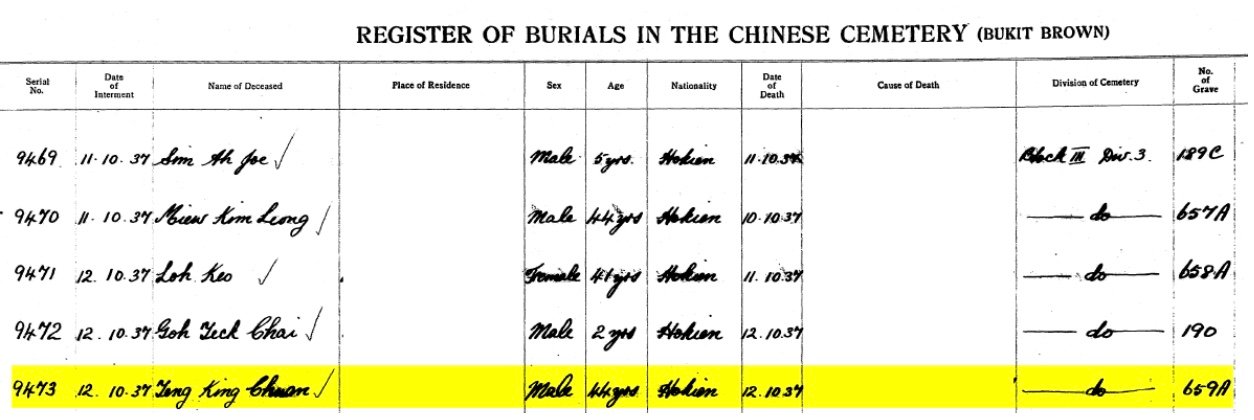 REGISTER OF BURIALS IN THE CHINESE CEMETERY (BUKIT BROWN)
Serial No. Date of Interment Name of Deceased Place of Residence Sex Age Nationality Date of Death Cause of Death Division of Cemetery No. of Grave
9469 11.10.37 Sim Ah Joe ✓ Male 5 yrs. Hokien 11.10.37 Block III Div. 3. 189C
9470 11.10.37 Miew Kim Leong ✓ Male 44 yrs Hokien 10.10.37 — do — 657A
9471 12.10.37 Loh Keo ✓ Female 41 yrs Hokien 11.10.37 — do — 658A
9472 12.10.37 Goh Teck Chai ✓ Male 2 yrs Hokien 12.10.37 — do — 190
9473 12.10.37 Teng King Chuan ✓ Male 44 yrs Hokien 12.10.37 — do — 659A